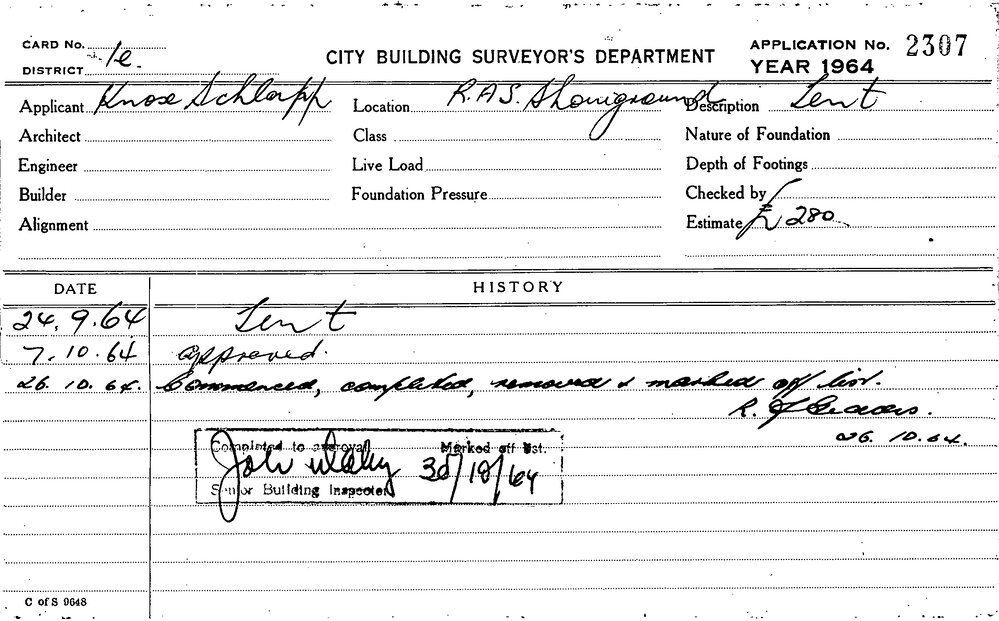 CARD No.
CITY BUILDING SURVEYOR'S DEPARTMENT
APPLICATION No. 2307
DISTRICT 1e.
YEAR 1964
Applicant Knox Schlapp Location R.A.S. Showground Description Tent
Architect Class Nature of Foundation
Engineer Live Load Depth of Footings
Builder Foundation Pressure Checked by
Alignment Estimate £ 280
DATE HISTORY
24.9.64 Tent
7.10.64 approved.
26.10.64. Commenced, completed, removed & marked off list.
R.
26.10.64.
Completed to approval Marked off list.
30/10/64
Senior Building Inspector
C of S 9648